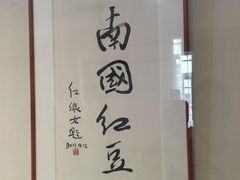 南國紅豆
红线女题
2011.4.12